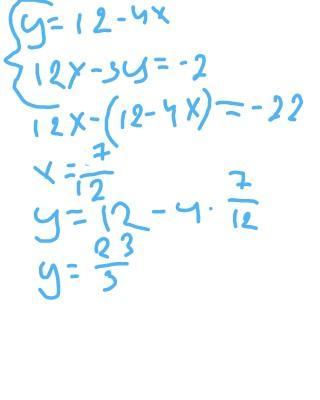 y = 12 - 4x
12x - 3y = -2
12x - (12 - 4x) = -22
x = 7/12
y = 12 - 4 · 7/12
y = 23/3